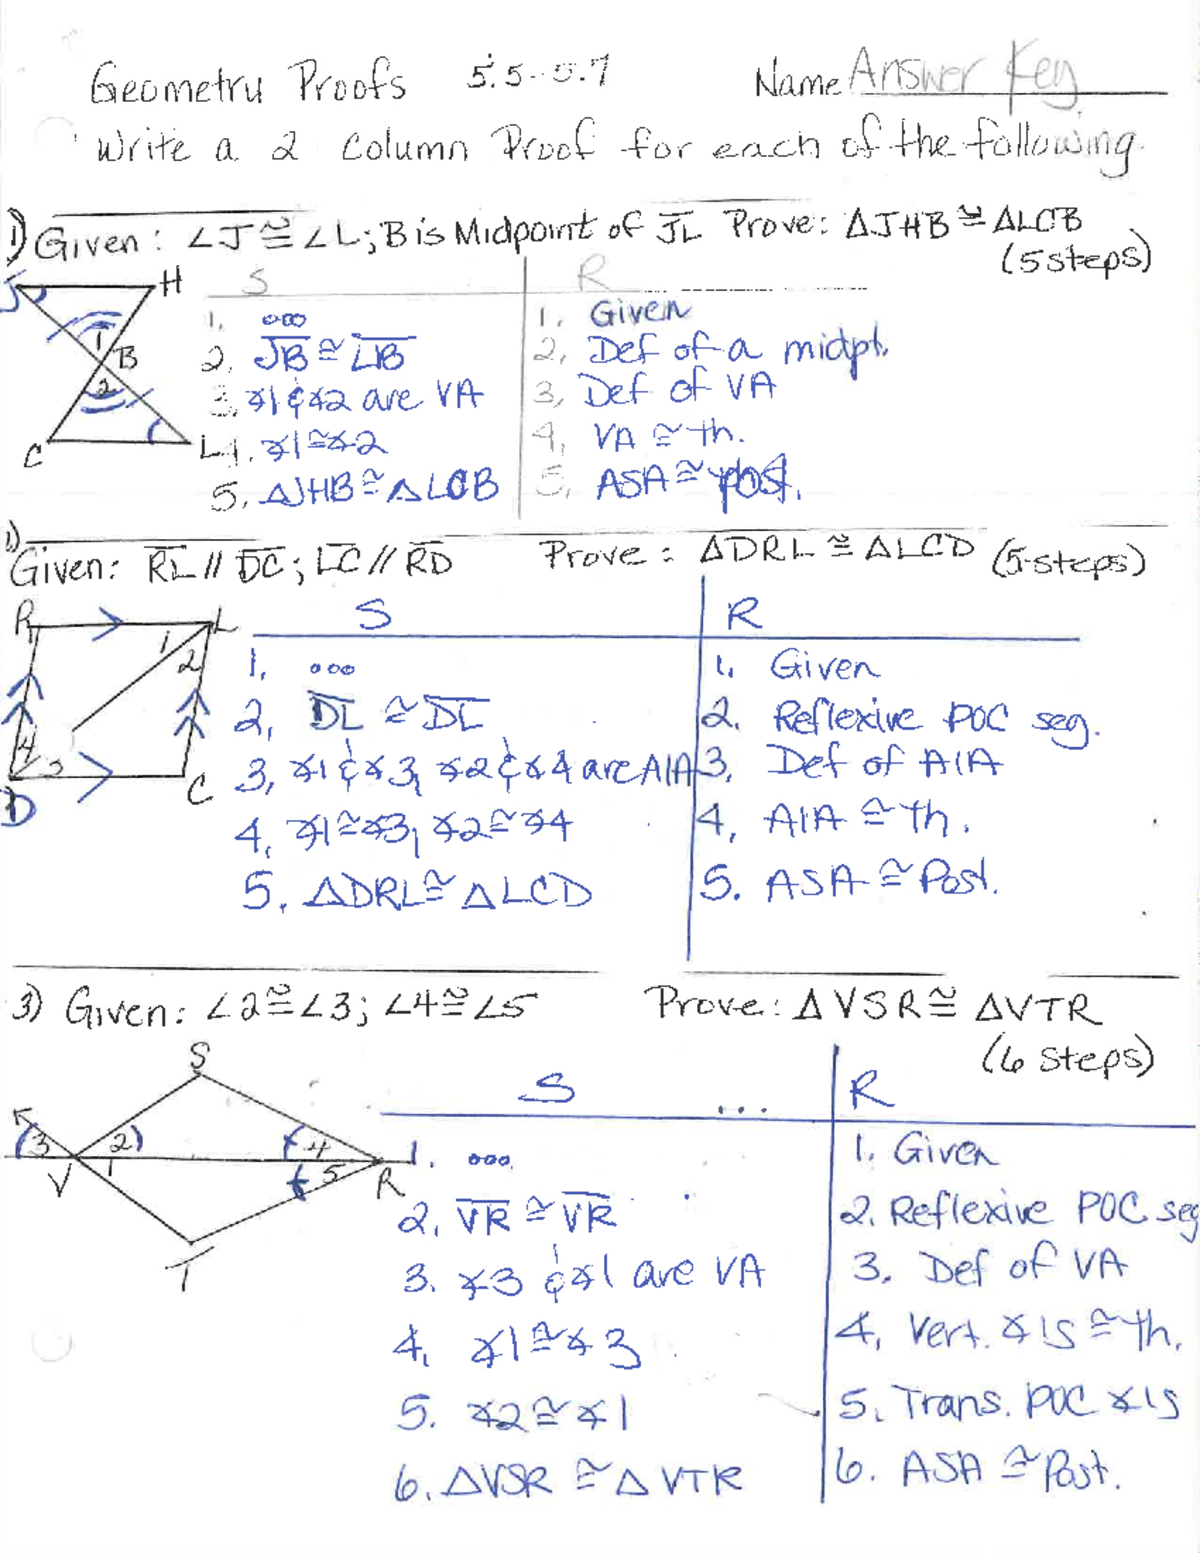 Geometry Proofs 5.5-5.7 Name Answer Key
Write a 2 Column Proof for each of the following
1) Given: ∠J≅∠L; B is Midpoint of JL Prove: △JHB≅△LCB
(5 steps)
J H S R
1. ooo 1. Given
1 B 2. JB≅LB 2. Def of a midpt.
2 3. ∡1 & ∡2 are VA 3. Def of VA
C L 4. ∡1≅∡2 4. VA ≅ th.
5. △JHB≅△LCB 5. ASA ≅ post.
Given: RL // DC; LC // RD Prove: △DRL ≅ △LCD (5 steps)
R L S R
1 2 1. ooo 1. Given
2. DL ≅ DL 2. Reflexive POC seg.
4 3 C 3. ∡1 & ∡3, ∡2 & ∡4 are AIA 3. Def of AIA
D 4. ∡1≅∡3, ∡2≅∡4 4. AIA ≅ th.
5. △DRL≅△LCD 5. ASA ≅ Post.
3) Given: ∠2≅∠3; ∠4≅∠5 Prove: △VSR≅△VTR
(6 steps)
S S ... R
3 2 4 1. ooo 1. Given
V 1 5 R 2. VR ≅ VR 2. Reflexive POC seg
T 3. ∡3 & ∡1 are VA 3. Def of VA
4. ∡1≅∡3 4. Vert. ∡'s ≅ th.
5. ∡2≅∡1 5. Trans. POC ∡'s
6. △VSR ≅ △VTR 6. ASA ≅ Post.